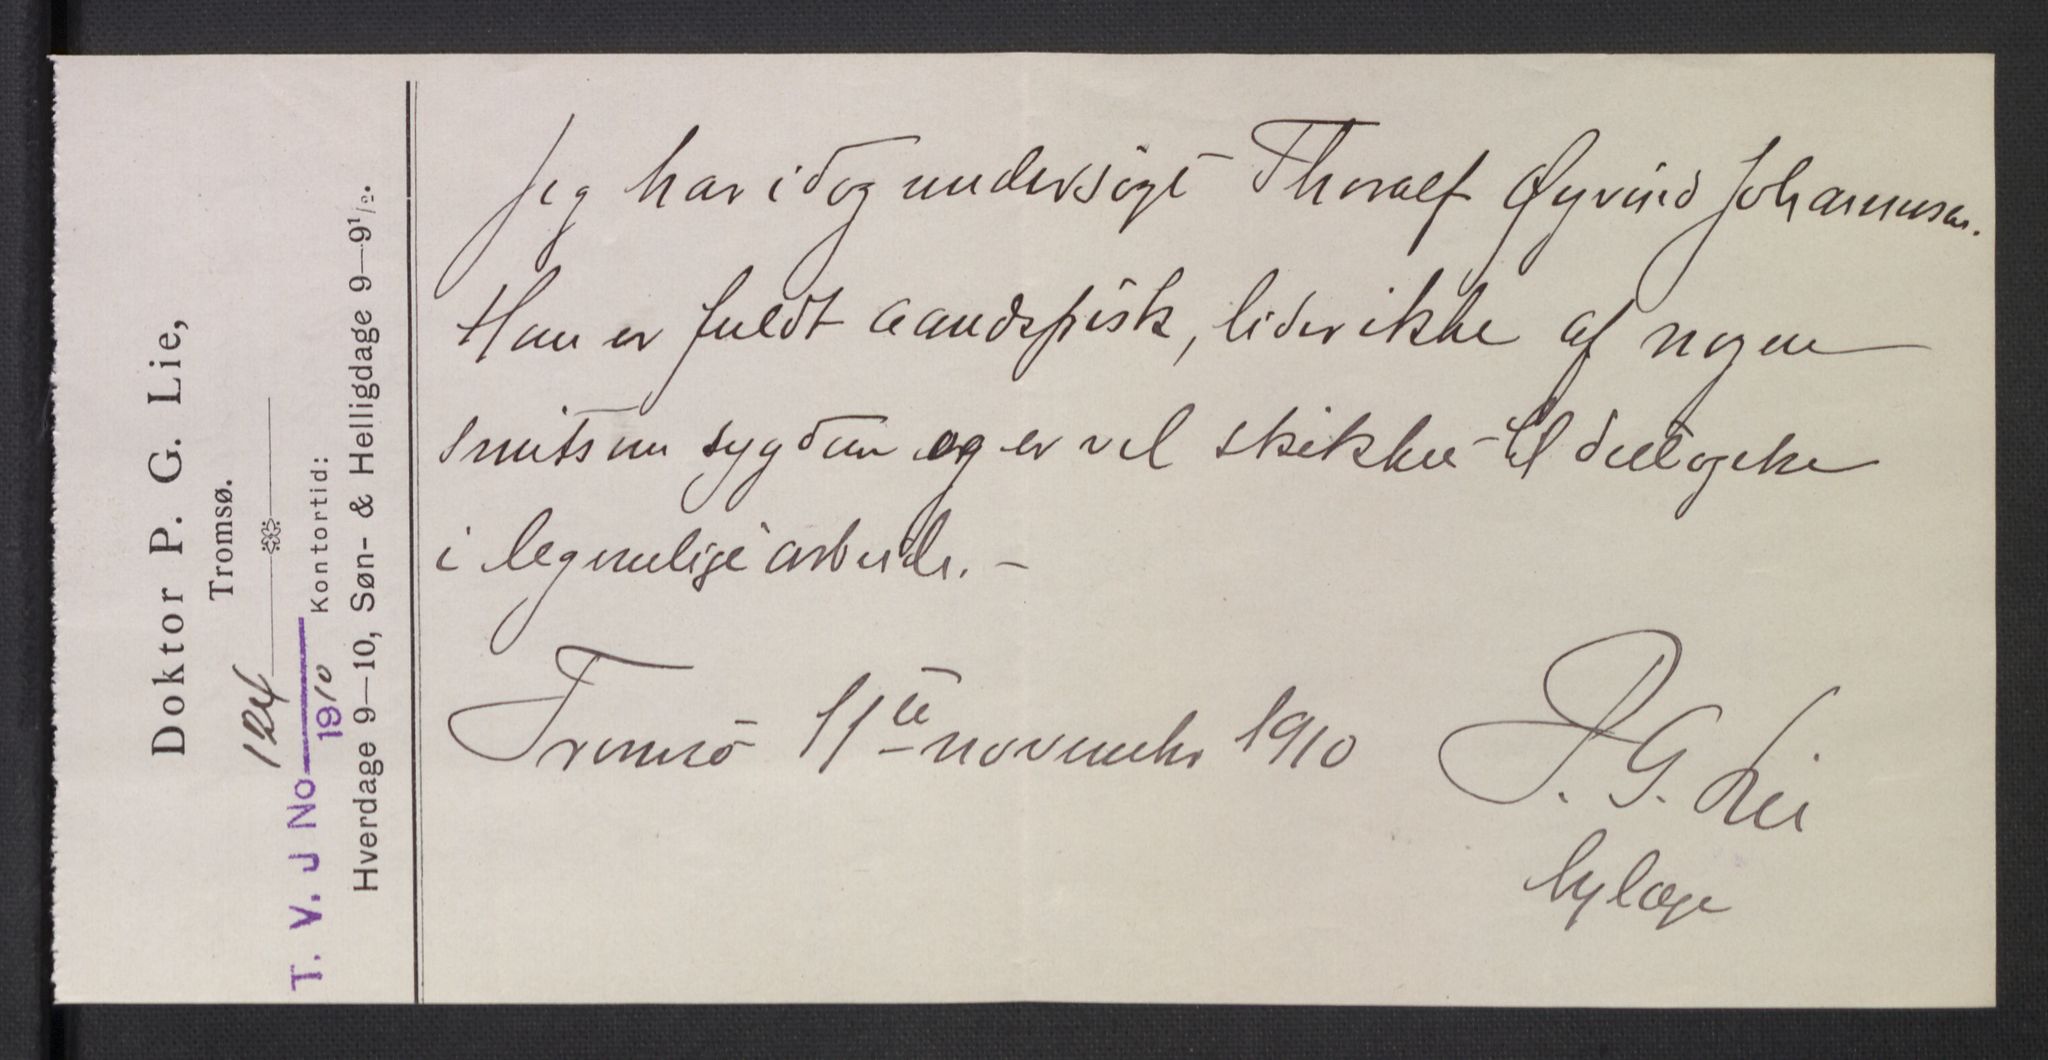 Doktor P. G. Lie,
Tromsø.
124
T. V. J No
1910
Kontortid:
Hverdage 9—10, Søn- & Helligdage 9—9½.
Jeg har idag undersøgt Thoralf Øyvind Johannesen.
Han er fuldt aandsfrisk, lider ikke af nogen
smitsom sygdom og er vel skikket til deltagelse
i legemlige arbeide. –
Tromsø 11te november 1910
P. G. Lie
bylæge